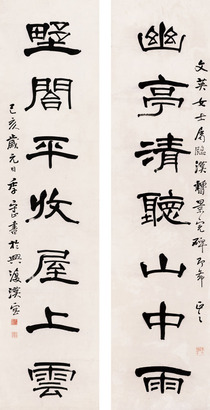 文英女士屬臨漢曹景完碑即希正之
幽亭清聽山中雨
墅閣平收屋上雲
己亥歲元日季書於興漢室